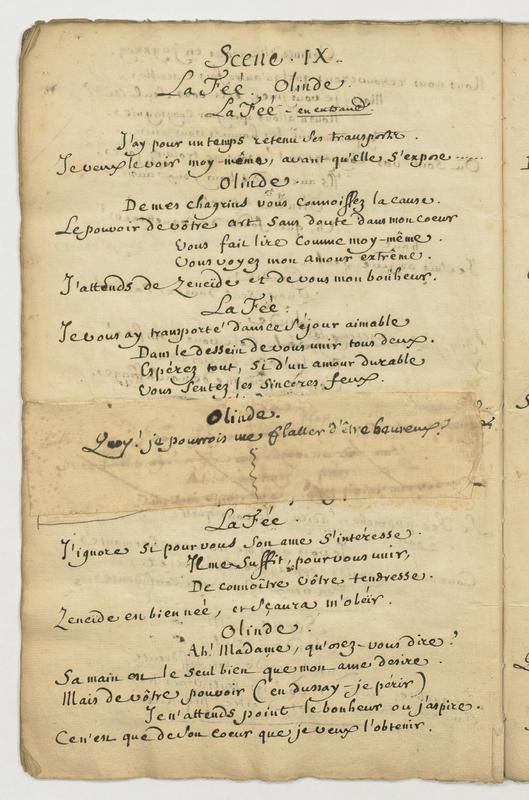 Scene. IX.
La Fée. Olinde.
La Fée - en entrand.
J'ay pour un temps retenu ses transports.
Je veux le voir moy-même, avant qu'elle s'expose......
Olinde.
De mes chagrins vous connoissez la cause.
Le pouvoir de vôtre art sans doute dans mon coeur
Vous fait lire comme moy-même.
Vous voyez mon amour extrême.
J'attends de Zeneïde et de vous mon bonheur.
La Fée.
Je vous ay transporté dans ce séjour aimable
Dans le dessein de vous unir tous deux.
Espérez tout, si d'un amour durable
Vous sentez les sincéres feux.
Olinde.
Quoy! je pourrois me flatter d'être heureux?
La Fée
J'ignore si pour vous son ame s'intéresse.
Il me suffit, pour vous unir,
De connoître vôtre tendresse.
Zeneïde est bien née, et sçaura m'obéir.
Olinde.
Ah! Madame, qu'osez-vous dire?
Sa main est le seul bien que mon ame desire.
Mais de vôtre pouvoir (en dussay-je périr)
Je n'attends point le bonheur ou j'aspire.
Ce n'est que de son coeur que je veux l'obtenir.